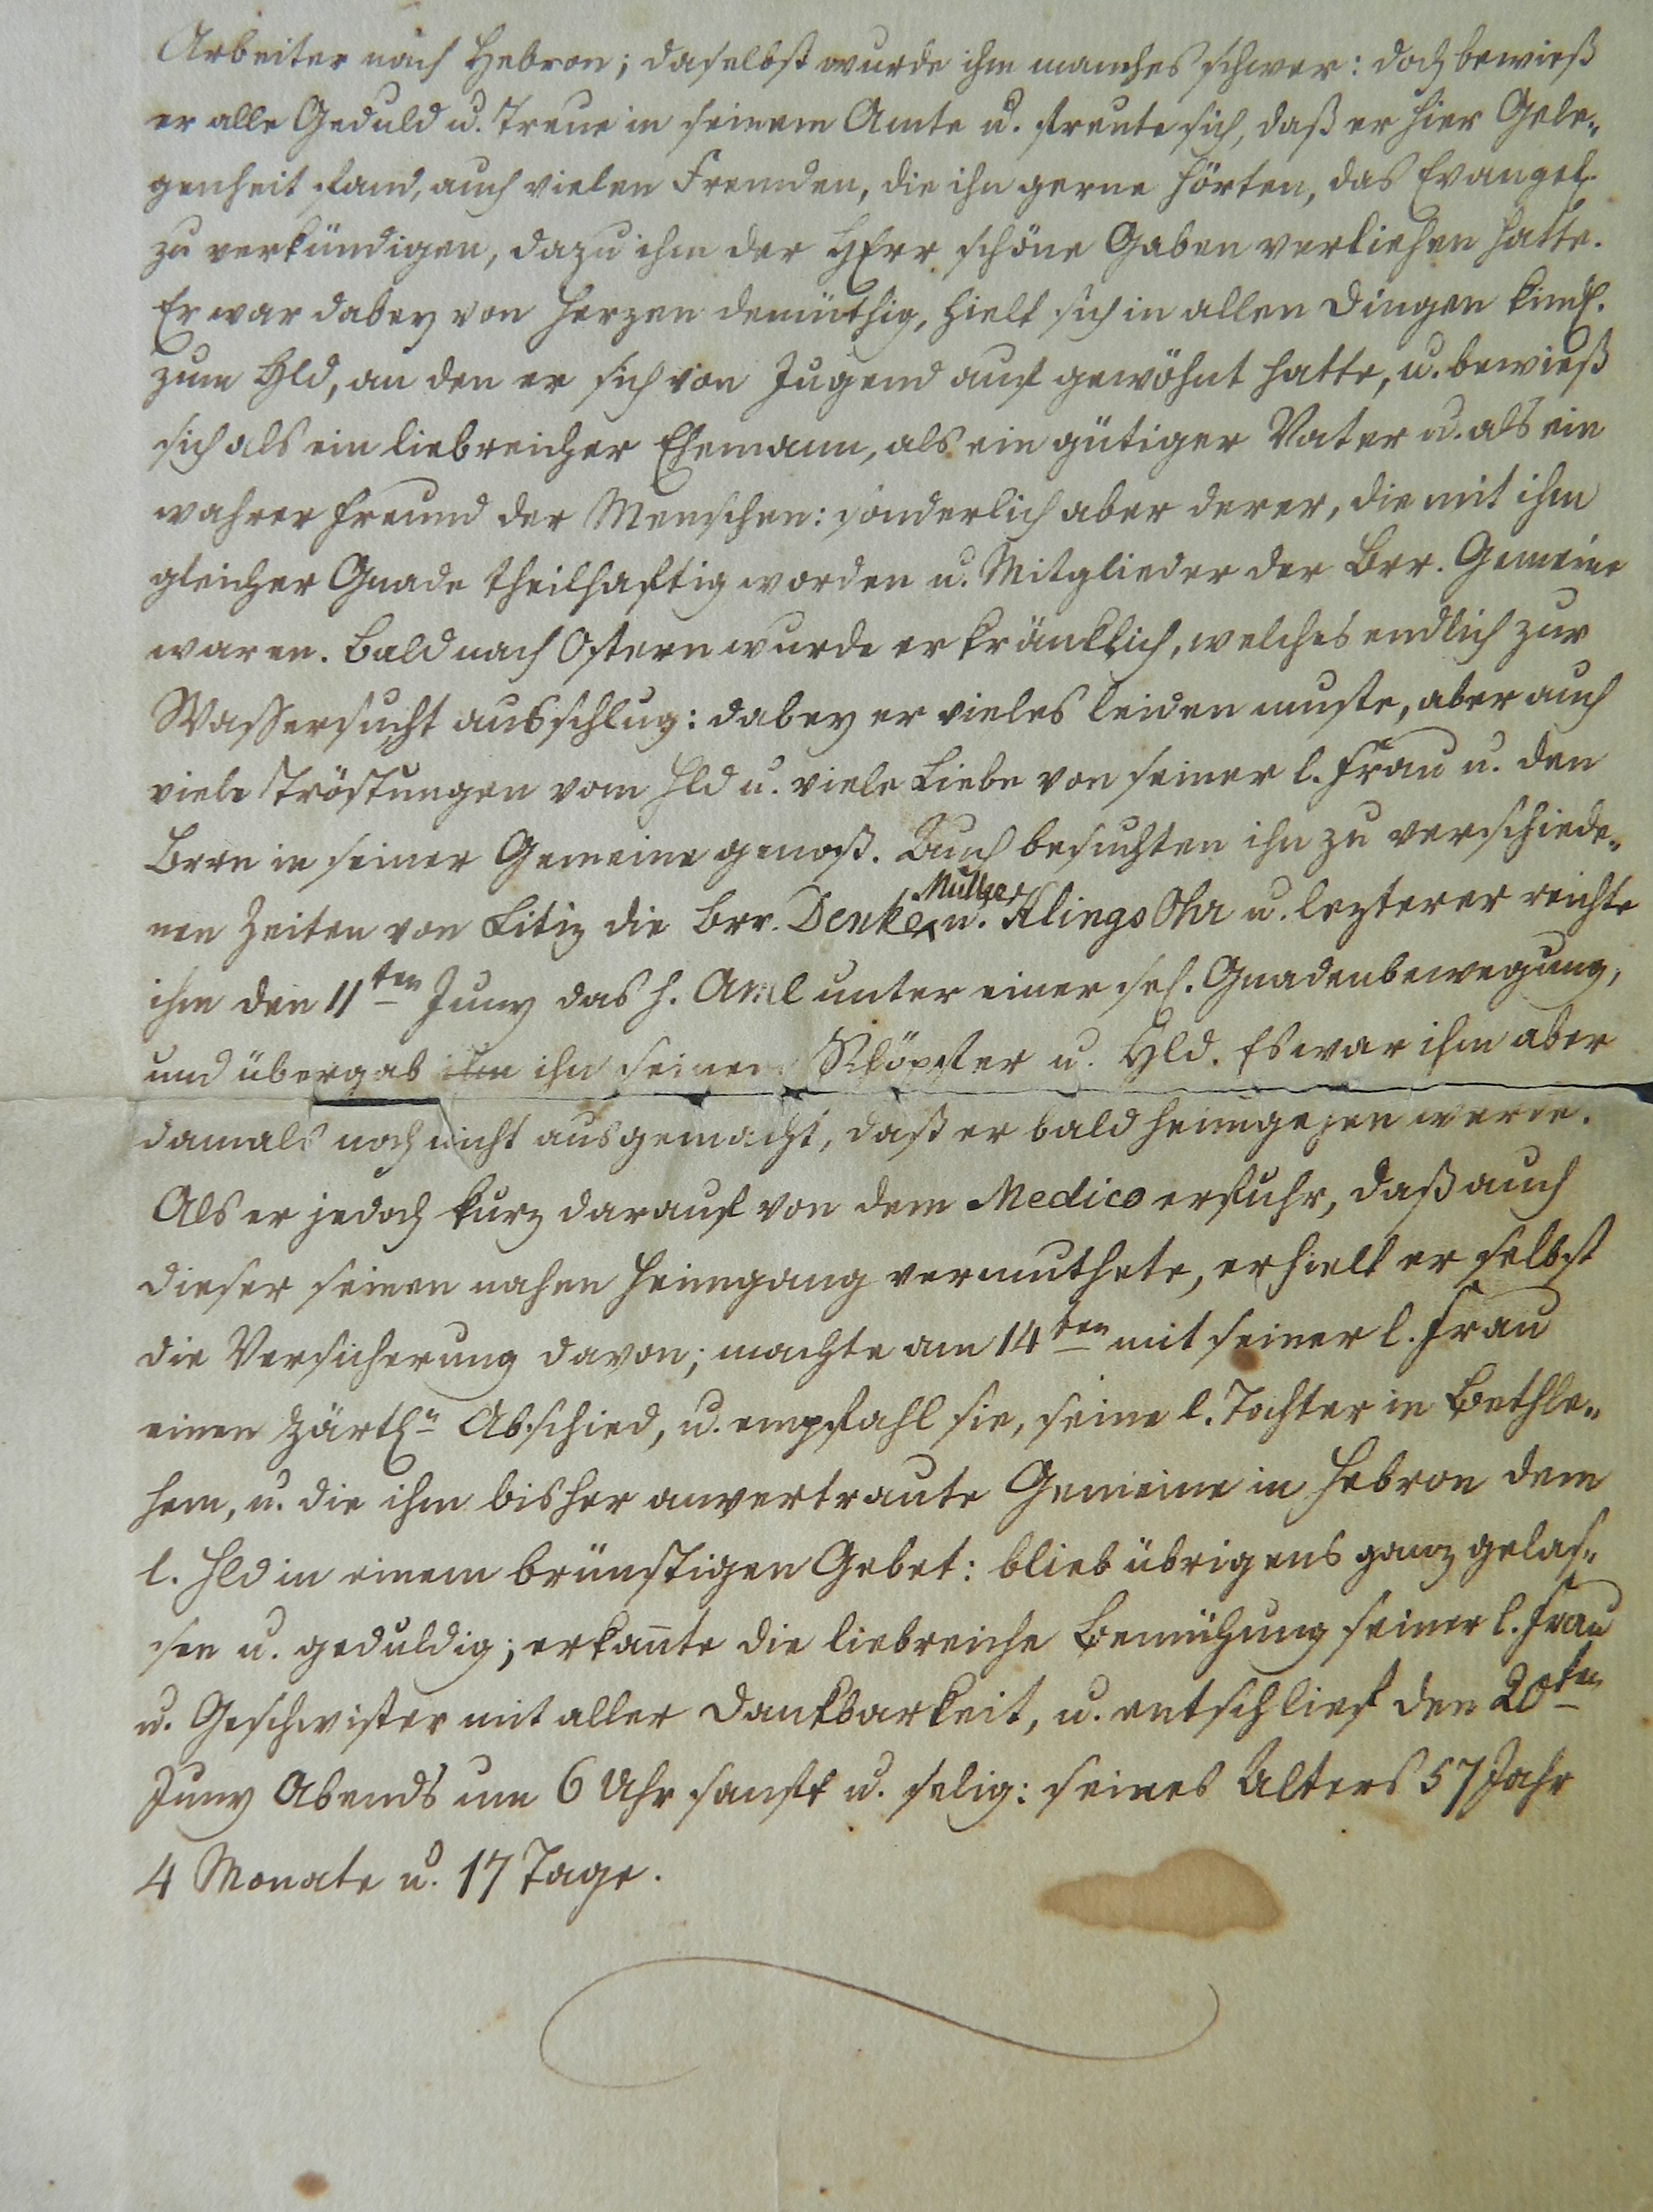 Arbeiter nach Hebron; daselbst wurde ihm manches schwer: doch bewieß
er alle Geduld u. Treue in seinem Amte u. freute sich, daß er hier Gele„
genheit fand, auch vielen Fremden, die ihn gerne hörten, das Evangel.
zu verkündigen, dazu ihm der HErr schöne Gaben verliehen hatte.
Er war dabey von Herzen demüthig, hielt sich in allen Dingen kindl.
zum Hld, an den er sich von Jugend auf gewöhnt hatte, u. bewieß
sich als ein liebreicher Ehemann, als ein gütiger Vater u. als ein
wahrer Freund der Menschen: sonderlich aber derer, die mit ihm
gleicher Gnade theilhaftig worden u. Mitglieder der Brr. Gemeine
waren. Bald nach Ostern wurde er kränklich, welches endlich zur
Wassersucht ausschlug: dabey er vieles leiden muste, aber auch
viele Tröstungen vom Hld u. viele Liebe von seiner l. Frau u. den
Brrn in seiner Gemeine genoß. Auch besuchten ihn zu verschiede„
nen Zeiten von Litiz die Brr. Denke, Müller u. KlingsOhr u. lezterer reichte
ihm den 11ten Juny das h. Aml unter einer sel. Gnadenbewegung,
und übergab ihm ihn seinem Schöpfer u. Hld. Es war ihm aber
damals noch nicht ausgemacht, daß er bald heimgehen werde.
Als er jedoch kurz darauf von dem Medico erfuhr, daß auch
dieser seinen nahen Heimgang vermuthete, erhielt er selbst
die Versicherung davon; machte am 14ten mit seiner l. Frau
einen zärtln Abschied, u. empfahl sie, seine l. Tochter in Bethle„
hem, u. die ihm bisher anvertraute Gemeine in Hebron dem
l. Hld in einem brünstigen Gebet: blieb übrigens ganz gelas„
sen u. geduldig; erkan̄te die liebreiche Bemühung seiner l. Frau
u. Geschwister mit aller Dankbarkeit, u. entschlief den 20ten
Juny Abends um 6 Uhr sanft u. selig: seines Alters 57 Jahr
4 Monate u. 17 Tage.